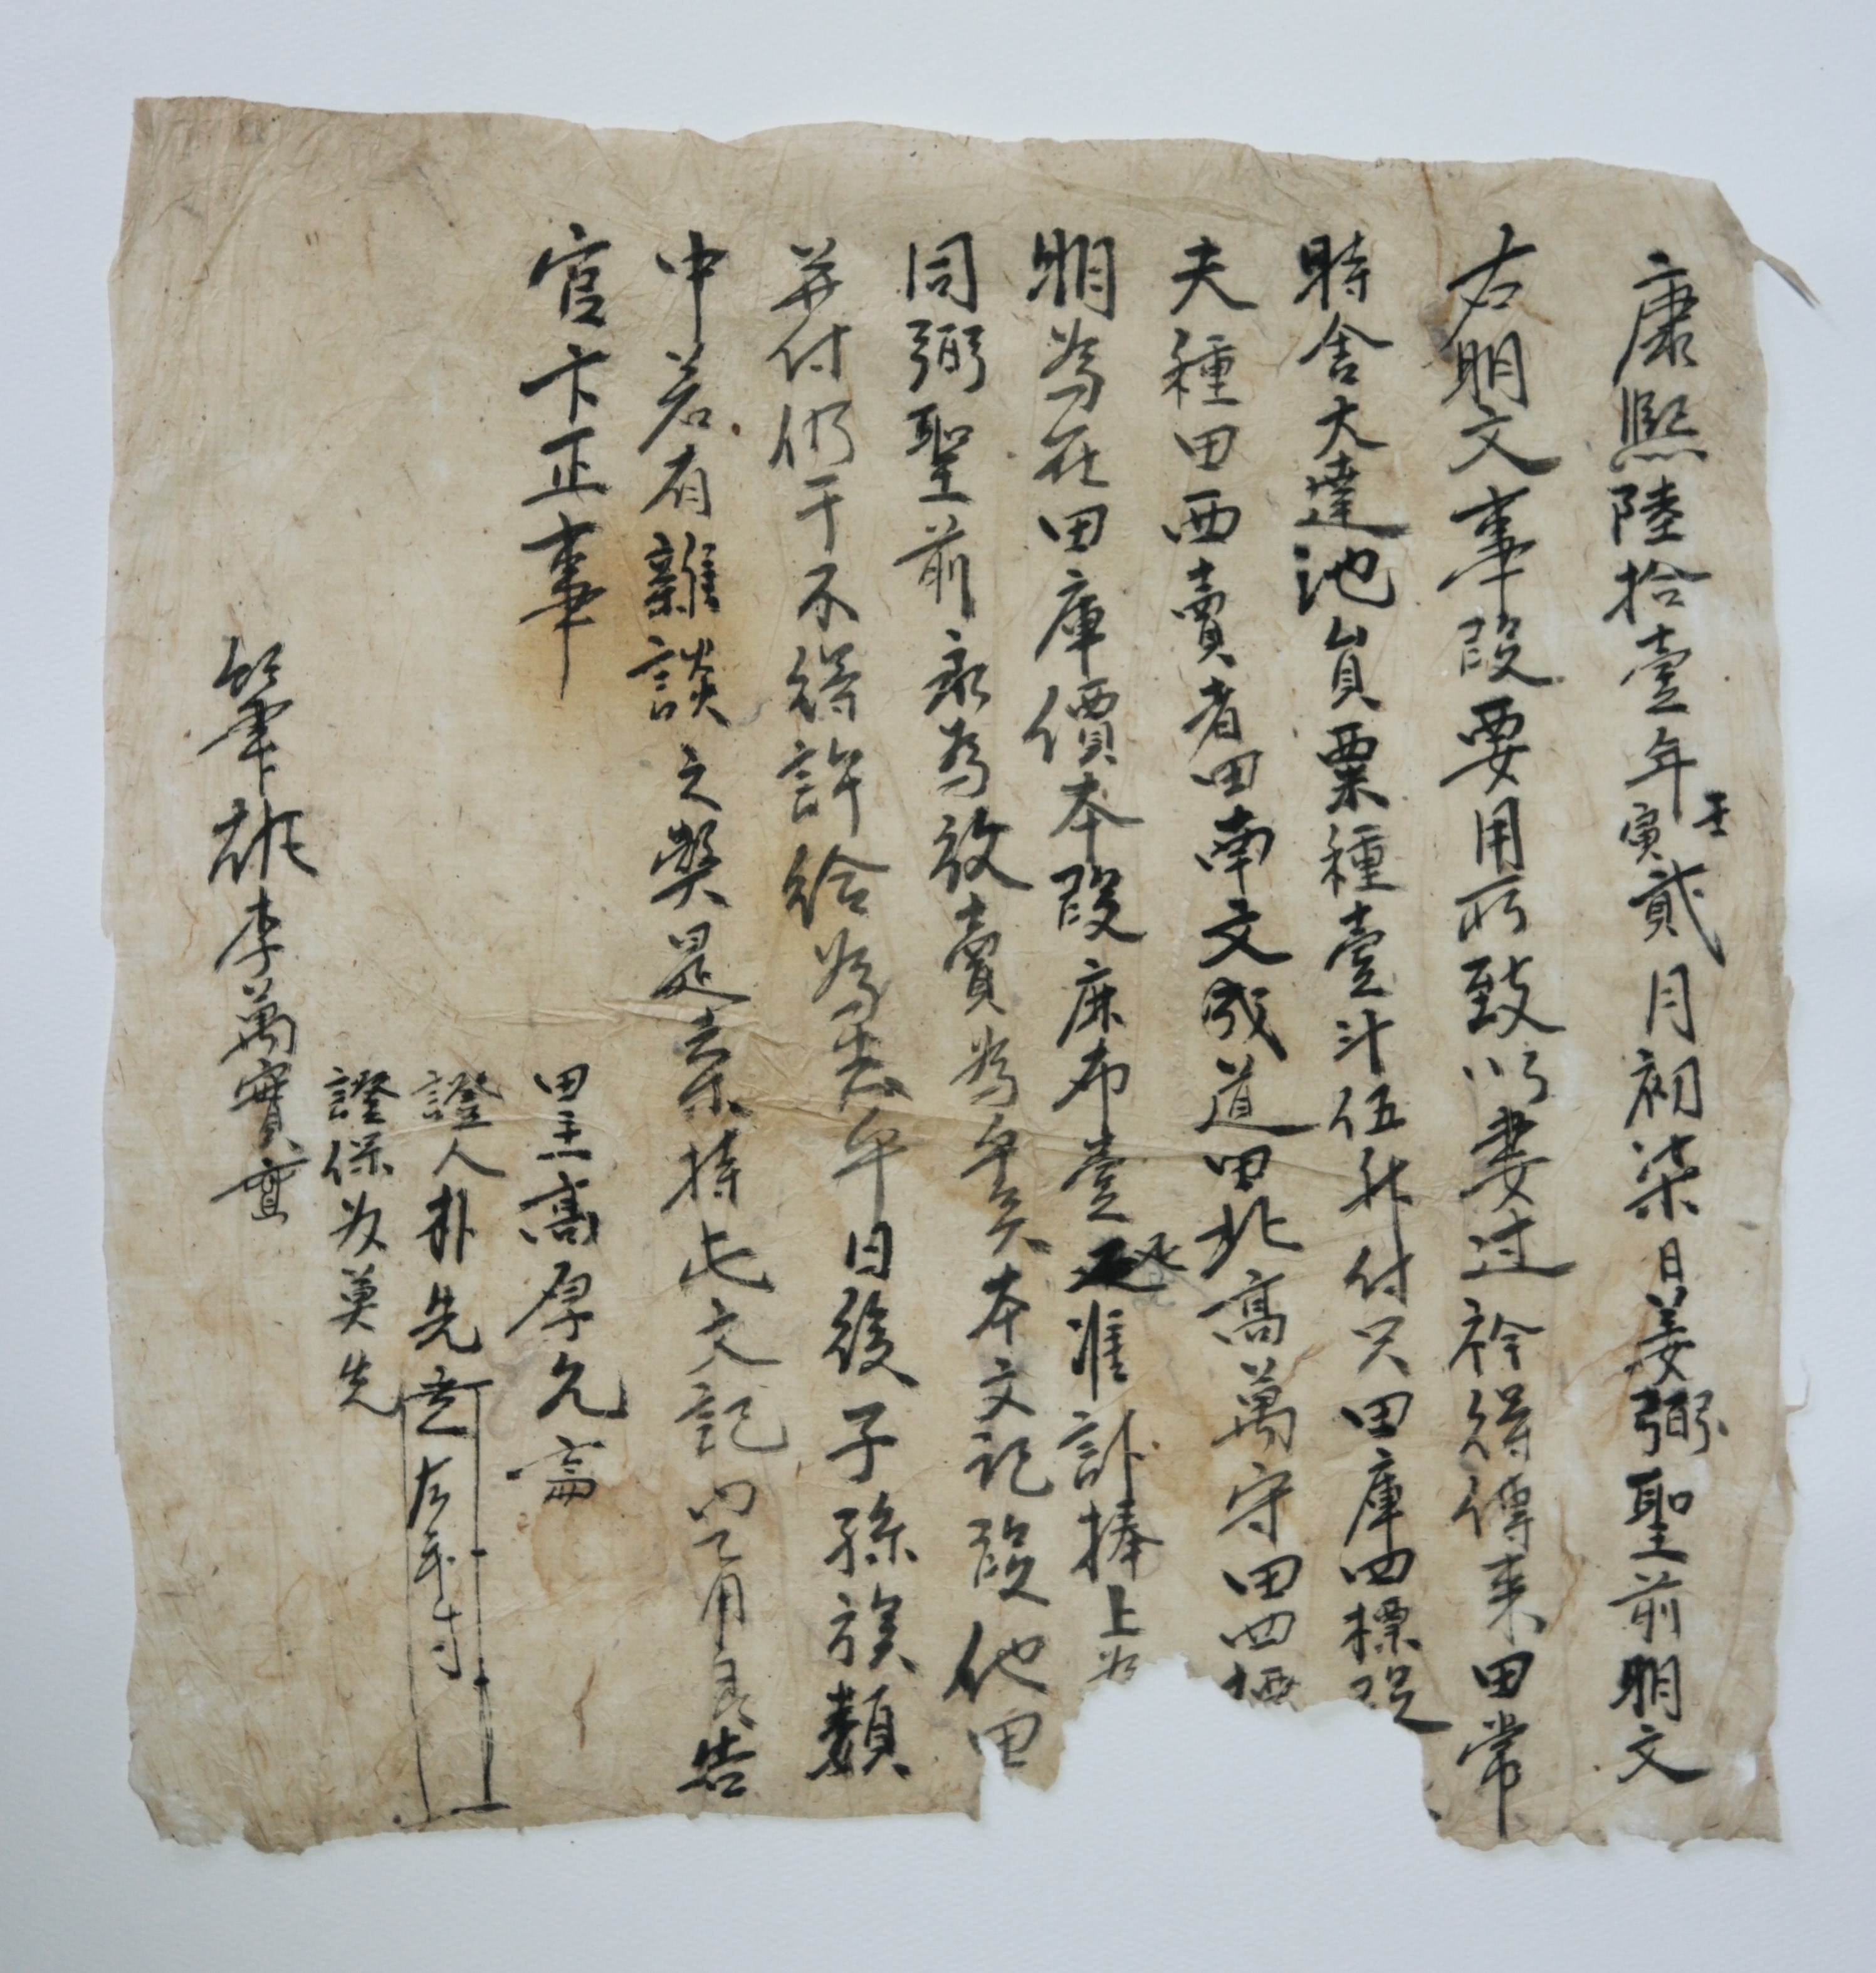 康熙陸拾壹年壬寅貳月初柒日姜弼聖前明文
右明文事段要用所致以妻过衿得傳来田常
時舍大達池員粟種壹斗伍升付只田庫四標段
夫種田西賣者田南文成道田北高萬守田四標
明為在田庫價本段麻布壹疋准計捧上為
同弼聖前永為放賣為乎矣本文記段他田
并付仍于不得許給為去乎日後子孫族類
中若有雜談之弊是去等持此文記以乙用良告
官卞正事
田主高厚允
證人朴先 左手寸
證保 莫先
筆執李萬實